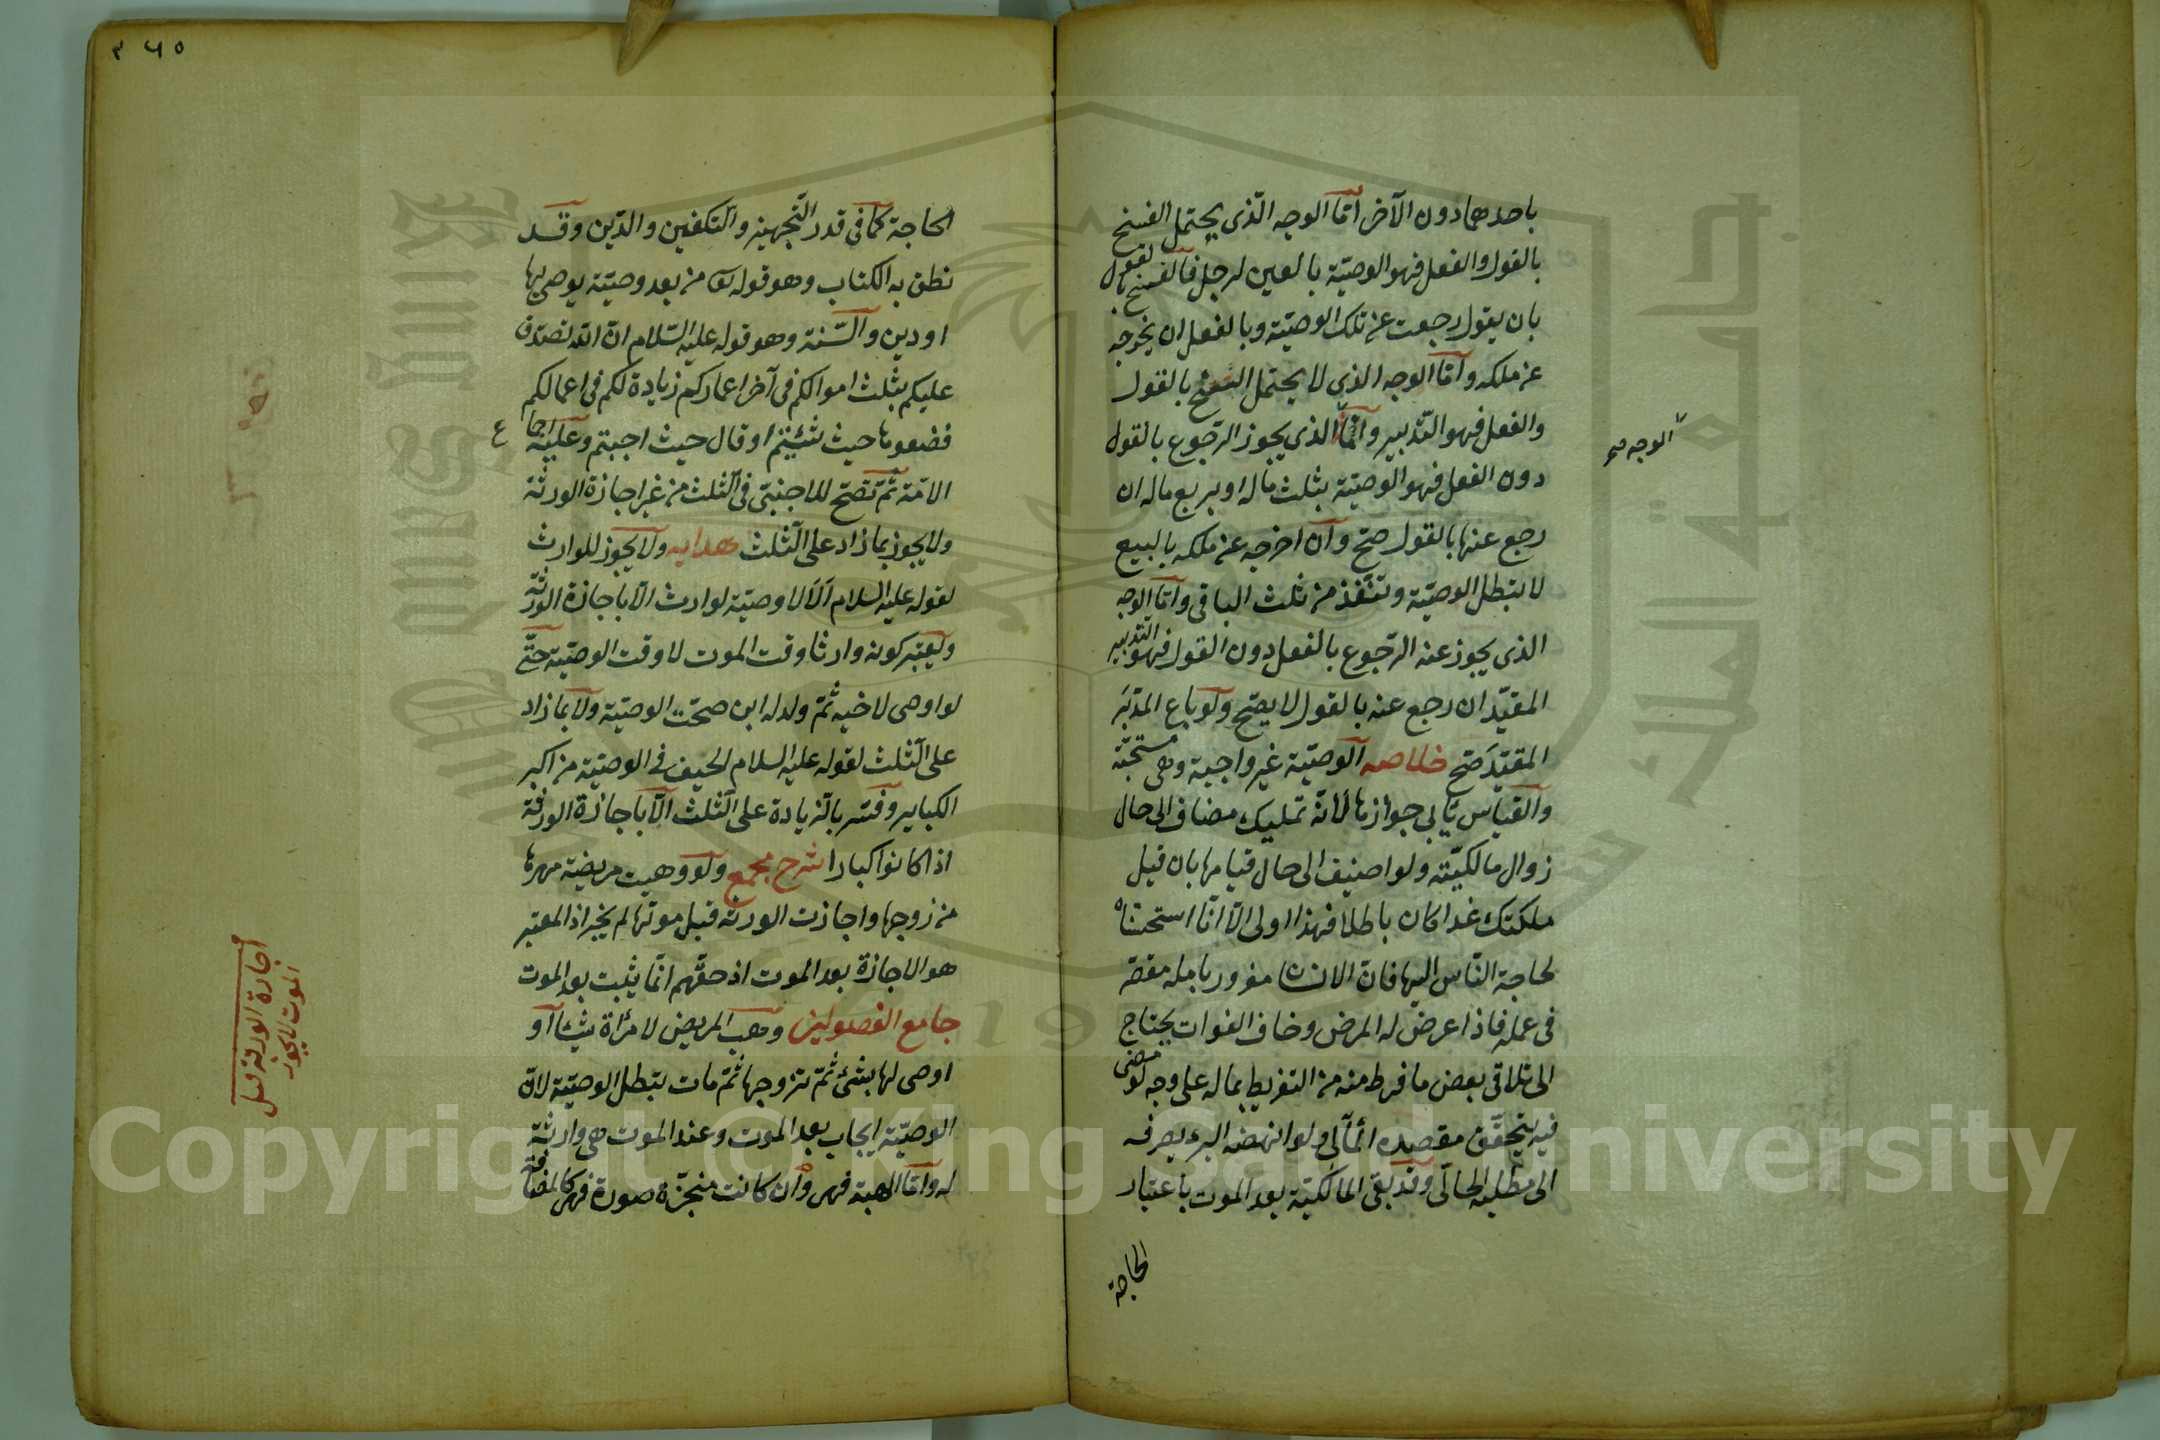 باحدهما دون الآخر أمّا الوجه الّذى يحتمل الفسخ
بالقول والفعل فهو الوصيّة بالعين لرجل فالفسخ بالقول
بان يقول رجعت عن تلك الوصيّة وبالفعل ان يخرجه
عن ملكه وأمّا الوجه الذى لا يحتمل الفسخ بالقول
والفعل فهو التّدبير وأمّا الذى يجوز الرّجوع بالقول
الوجه صح
دون الفعل فهو الوصيّة بثلث ماله او بربع ماله ان
رجع عنها بالقول صحّ وان اخرجه عن ملكه بالبيع
لا تبطل الوصيّة وتنفّذ من ثلث الباقى وأمّا الوجه
الذى يجوز عنه الرّجوع بالفعل دون القول فهو التّدبير
المقيّد ان رجع عنه بالقول لا يصحّ ولو باع المدبّر
المقيّد صحّ خلاصه الوصيّة غير واجبة وهى مستحبّة
والقياس يأبى جوازها لانّه تمليك مضاف الى حال
زوال مالكيّته ولو اضيف الى حال قيامها بان قيل
ملكتك غدا كان باطلا فهذا اولى الّا انّا استحسنّاه
لحاجة النّاس اليها فانّ الانسان مغرور بامله مقصّر
فى عمله فاذا عرض له المرض وخاف الفوات يحتاج
الى تلافى بعض ما فرط منه من التفريط بماله على وجه لو مضى
فيه يتحقّق مقصده المآلى ولو انهضه البرء يصرفه
الى مطلبه الحالى وقد تبقى المالكيّة بعد الموت باعتبار
الحاجة
٣٦٥
الحاجة كما فى قدر التّجهيز والتّكفين والدّين وقد
نطق به الكتاب وهو قوله تع من بعد وصيّة يوصى بها
او دين والسّنة وهو قوله عليه السّلام انّ الله تصدّق
عليكم بثلث اموالكم فى آخر اعماركم زيادة لكم فى اعمالكم
فضعوها حيث شئتم او قال حيث احببتم وعليه اجماع
الامّة ثمّ تصّح للاجنبىّ فى الثّلث من غير اجازة الورثة
ولا يجوز بما زاد على الثّلث هدايه ولا يجوز للوارث
لقوله عليه السلام الا لا وصيّة لوارث الّا باجازة الورثة
ويعتبر كونه وارثا وقت الموت لا وقت الوصيّة حتّى
لو اوصى لاخيه ثمّ ولد له ابن صحّت الوصيّة ولا بما زاد
على الثّلث لقوله عليه السلام الحيف فى الوصيّة من اكبر
الكبائر وفسّر بالزيادة على الثّلث الّا باجازة الورثة
اذا كانوا كبارا شرح مجمع ولو وهبت مريضة مهرها
من زوجها واجازت الورثة قبل موتها لم يجز اذ المعتبر
هو الاجازة بعد الموت اذ حقّهم انّما يثبت بعد الموت
جامع الفصولين وهب المريض لامرأة شيئا او
اوصى لها بشئ ثمّ تزوجها ثمّ مات تبطل الوصيّة لانّ
الوصيّة ايجاب بعد الموت وعند الموت هى وارثة
له وأمّا الهبة فهى وان كانت منجّزة صورة فهى كالمضافة
اجازة الورثة قبل
الموت لا يجوز
جامعة الملك سعود
King Saud University
1957
Copyright © King Saud University